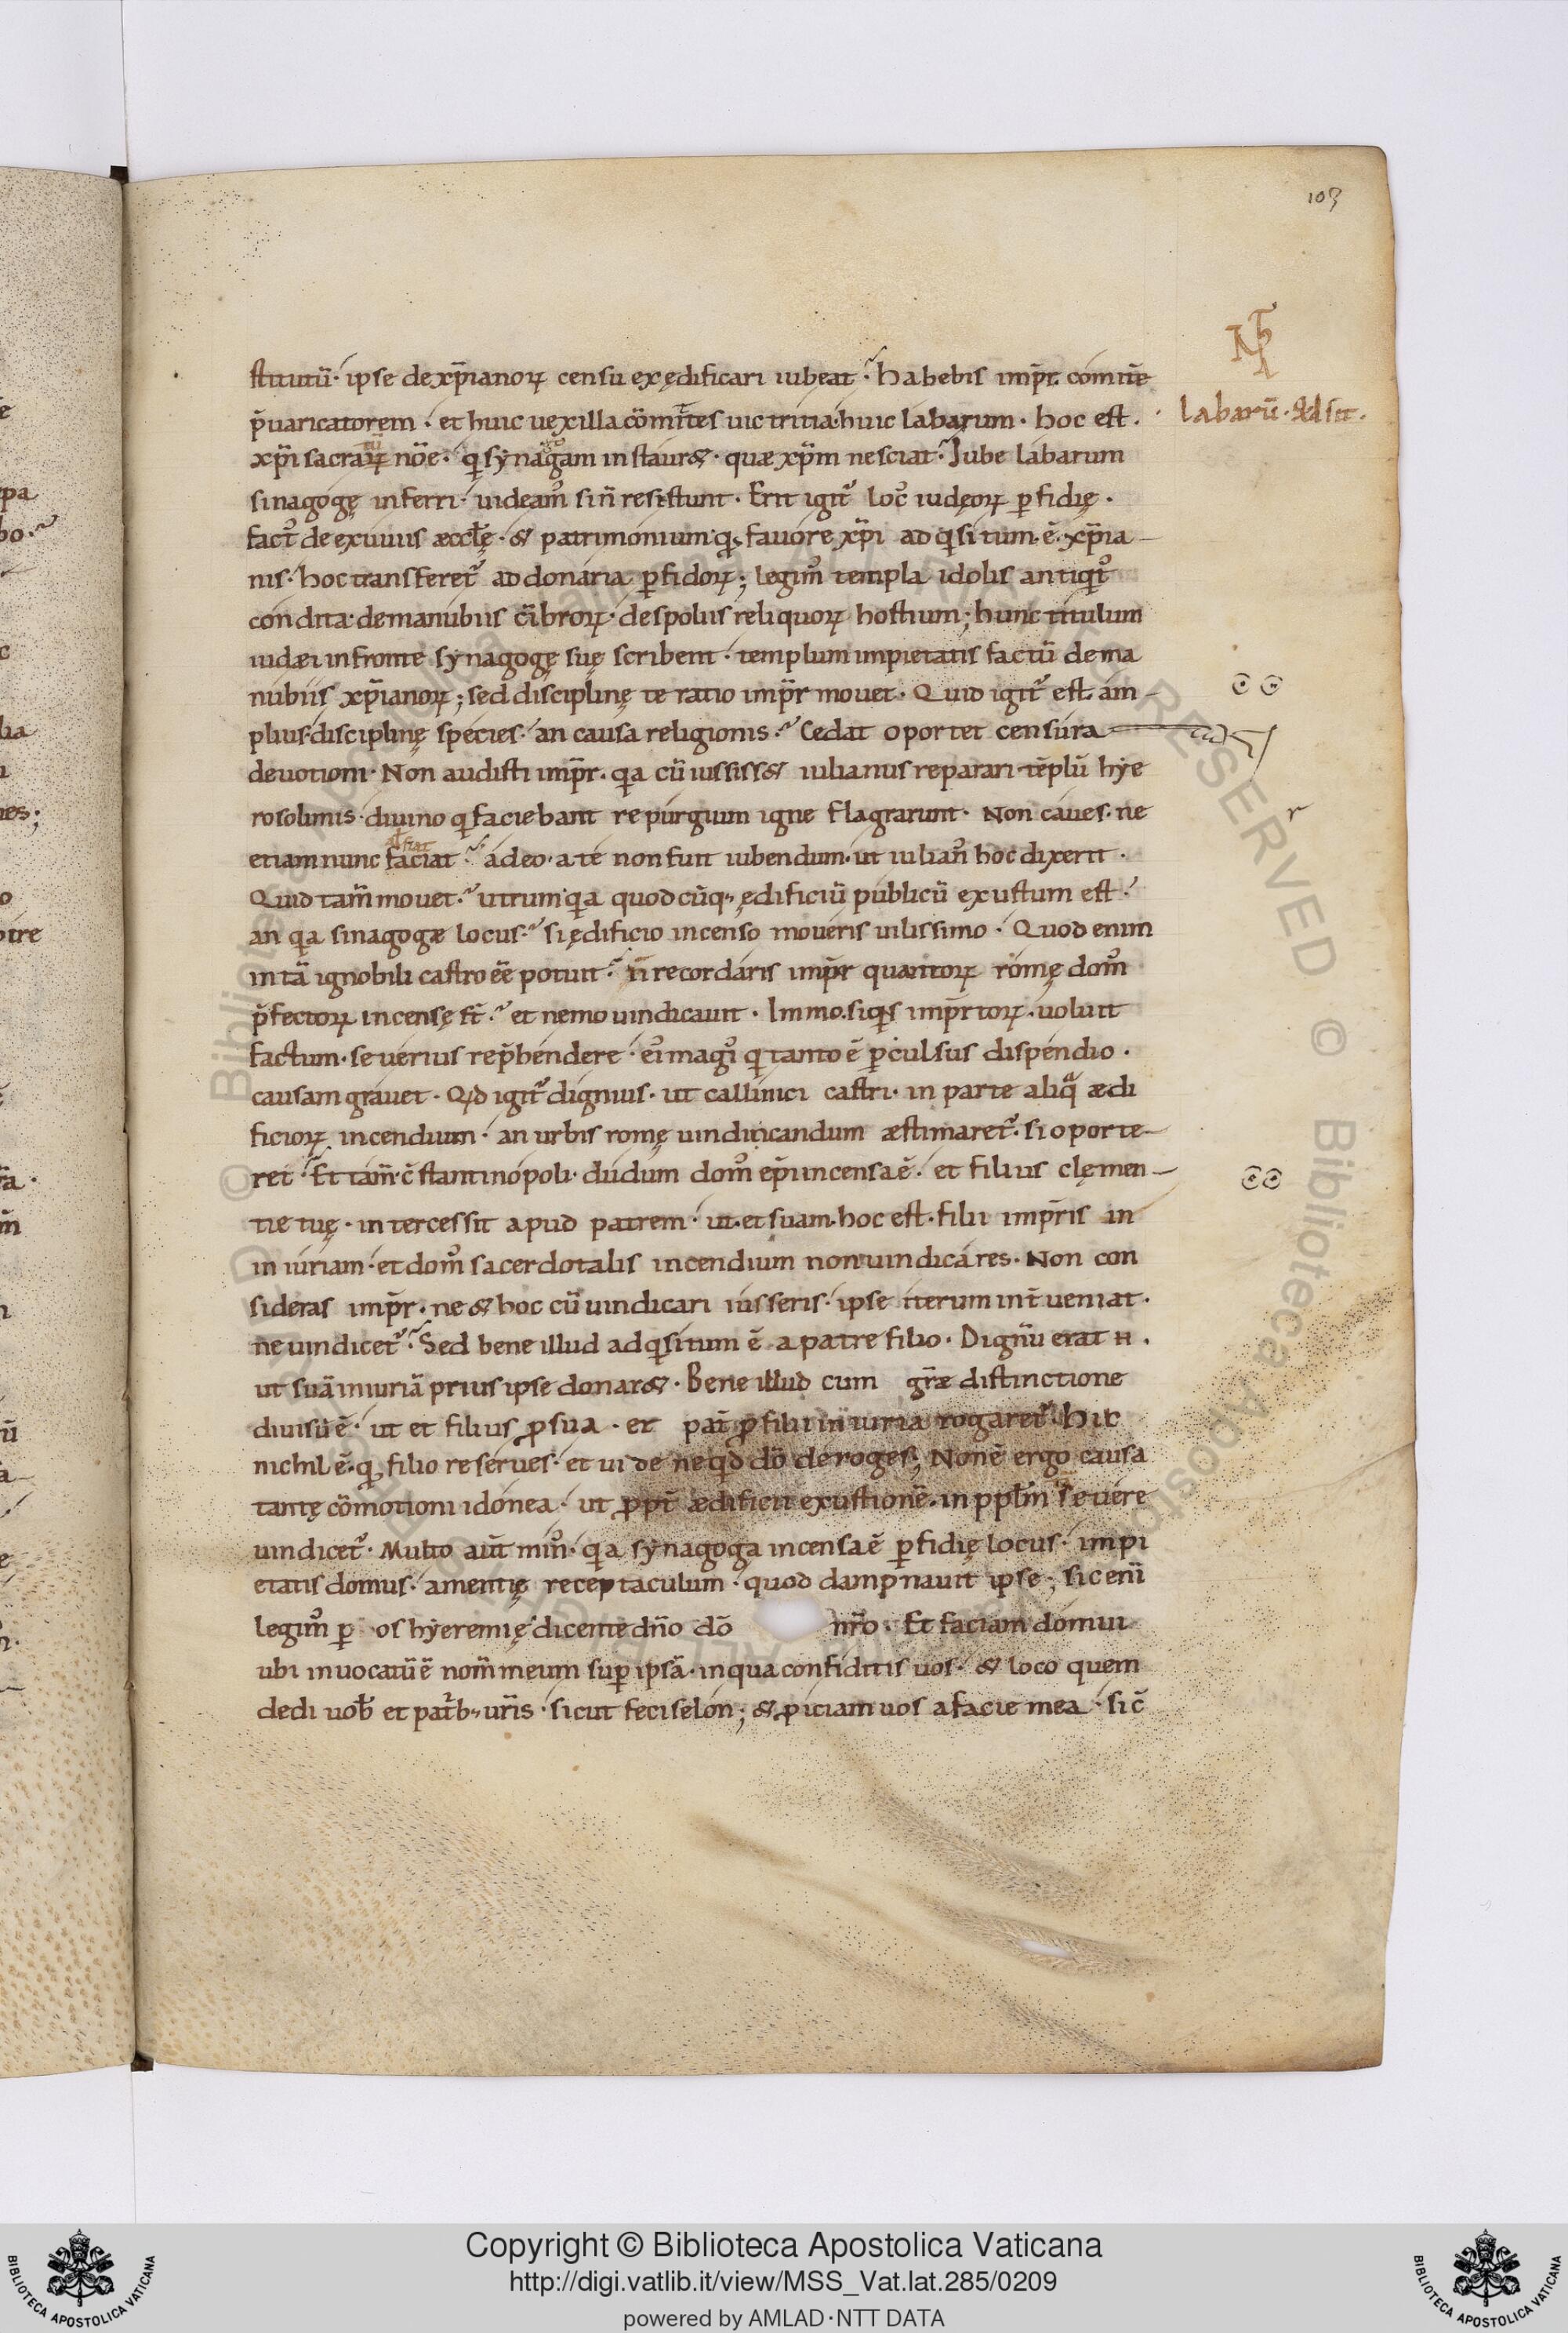 103
stitutū· ipse de xp̄ianoꝝ censu exędificari iubeat· Habebis imp̄r· comitē
p̄uaricatorem· et huic uexilla cōmittes uictritia· huic labarum· hoc est·
labarū· qd sit·
xp̄i sacraꝝ nōe· q̇ synagogam instauret· quæ xp̄m nesciat· Iube labarum
sinagogę inferri· uideam᷒ si n̄ resistunt· Erit igit᷑ loc᷒ iudęoꝝ ꝑfidię·
fact᷒ de exuuiis æccl̄ę· & patrimonium· qđ fauore xp̄i adq̇situm· ē· xp̄ia-
nis· hoc transferet᷑ ad donaria ꝑfidoꝝ; legim᷒ templa idolis antiqt᷒
condita· de manubiis cībroꝝ· de spoliis reliquoꝝ hostium; hunc titulum
iudæi in fronte synagogę suę scribent· templum impietatis factū de ma
nubiis xp̄ianoꝝ; sed disciplinę te ratio imp̄r mouet· Quid igit᷑ est am-
plius· disciplinę species· an causa religionis· Cedat oportet censura
deuotioni· Non audisti imp̄r· qa cū iussisset iulianus reparari tēplū hye
rosolimis· diuino q̇ faciebant repurgium igne flagrarunt· Non caues· ne
etiam nunc faciat· adeo· a te non fuit iubendum· ut iulian᷒ hoc dixerit·
Quid tam̄ mouet· utrum qa quodcūq· ędificiū publicū exustum est·
an qa sinagogæ locus· si ędificio incenso moueris uilissimo· Quod enim
in tā ignobili castro eē potuit· n̄ recordaris imp̄r quantoꝝ romę dom᷒
p̄fectoꝝ incensę st̄· et nemo uindicauit· Immo· siq̇s imp̄rtoꝝ· uoluit
factum· seuerius rep̄hendere· ei᷒ magi᷒ q̇ tanto ē ꝑculsus dispendio·
causam grauet· Qd igit᷑ dignius· ut callinici castri· in parte aliqa ædi
ficioꝝ incendium· an urbis romę uindicandum æstimaret᷑· si oporte-
ret· Et tam̄· c̄stantinopoli· dudum dom᷒ ep̄i incensa ē· et filius clęmen-
tie tuę· intercessit apud patrem· ut· et suam· hoc est· filii imp̄ris in
iniuriam· et dom᷒ sacerdotalis incendium non uindicares· Non con
sideras imp̄r· ne & hoc cū uindicari iusseris· ipse iterum int̄ueniat·
ne uindicet᷑· Sed bene illud adq̇situm ē a patre filio· Dignū erat n·
ut suā iniuriā prius ipse donaret· Bene illud cum gr̄æ distinctione
diuisū ē· ut et filius ꝓ sua· et pat̄ ꝓ filii iniuria rogaret᷑· Hic
nichil ē· qđ filio reserues· et uide ne qd dō deroges; Non ē ergo causa
tantę cōmotioni idonea· ut ꝓpt̄ ædificii exustionē· in ppl̄m seuere
uindicet᷑· Multo aut̄ min᷒· qa synagoga incensa ē ꝑfidię locus· impi
etatis domus· amentię receptaculum· quod dampnauit ipse; sic enī
legim᷒ ꝑ os hyeremię dicente dn̄o dō nr̄o· Et faciam domui
ubi inuocatū ē nom̄ meum suꝑ ipsā· in qua confiditis uos· & loco quem
dedi uob̄ et patrib· ur̄is· sicut feci selon; & ꝓiciam uos a facie mea· sic̄
Copyright © Biblioteca Apostolica Vaticana
http://digi.vatlib.it/view/MSS_Vat.lat.285/0209
powered by AMLAD·NTT DATA